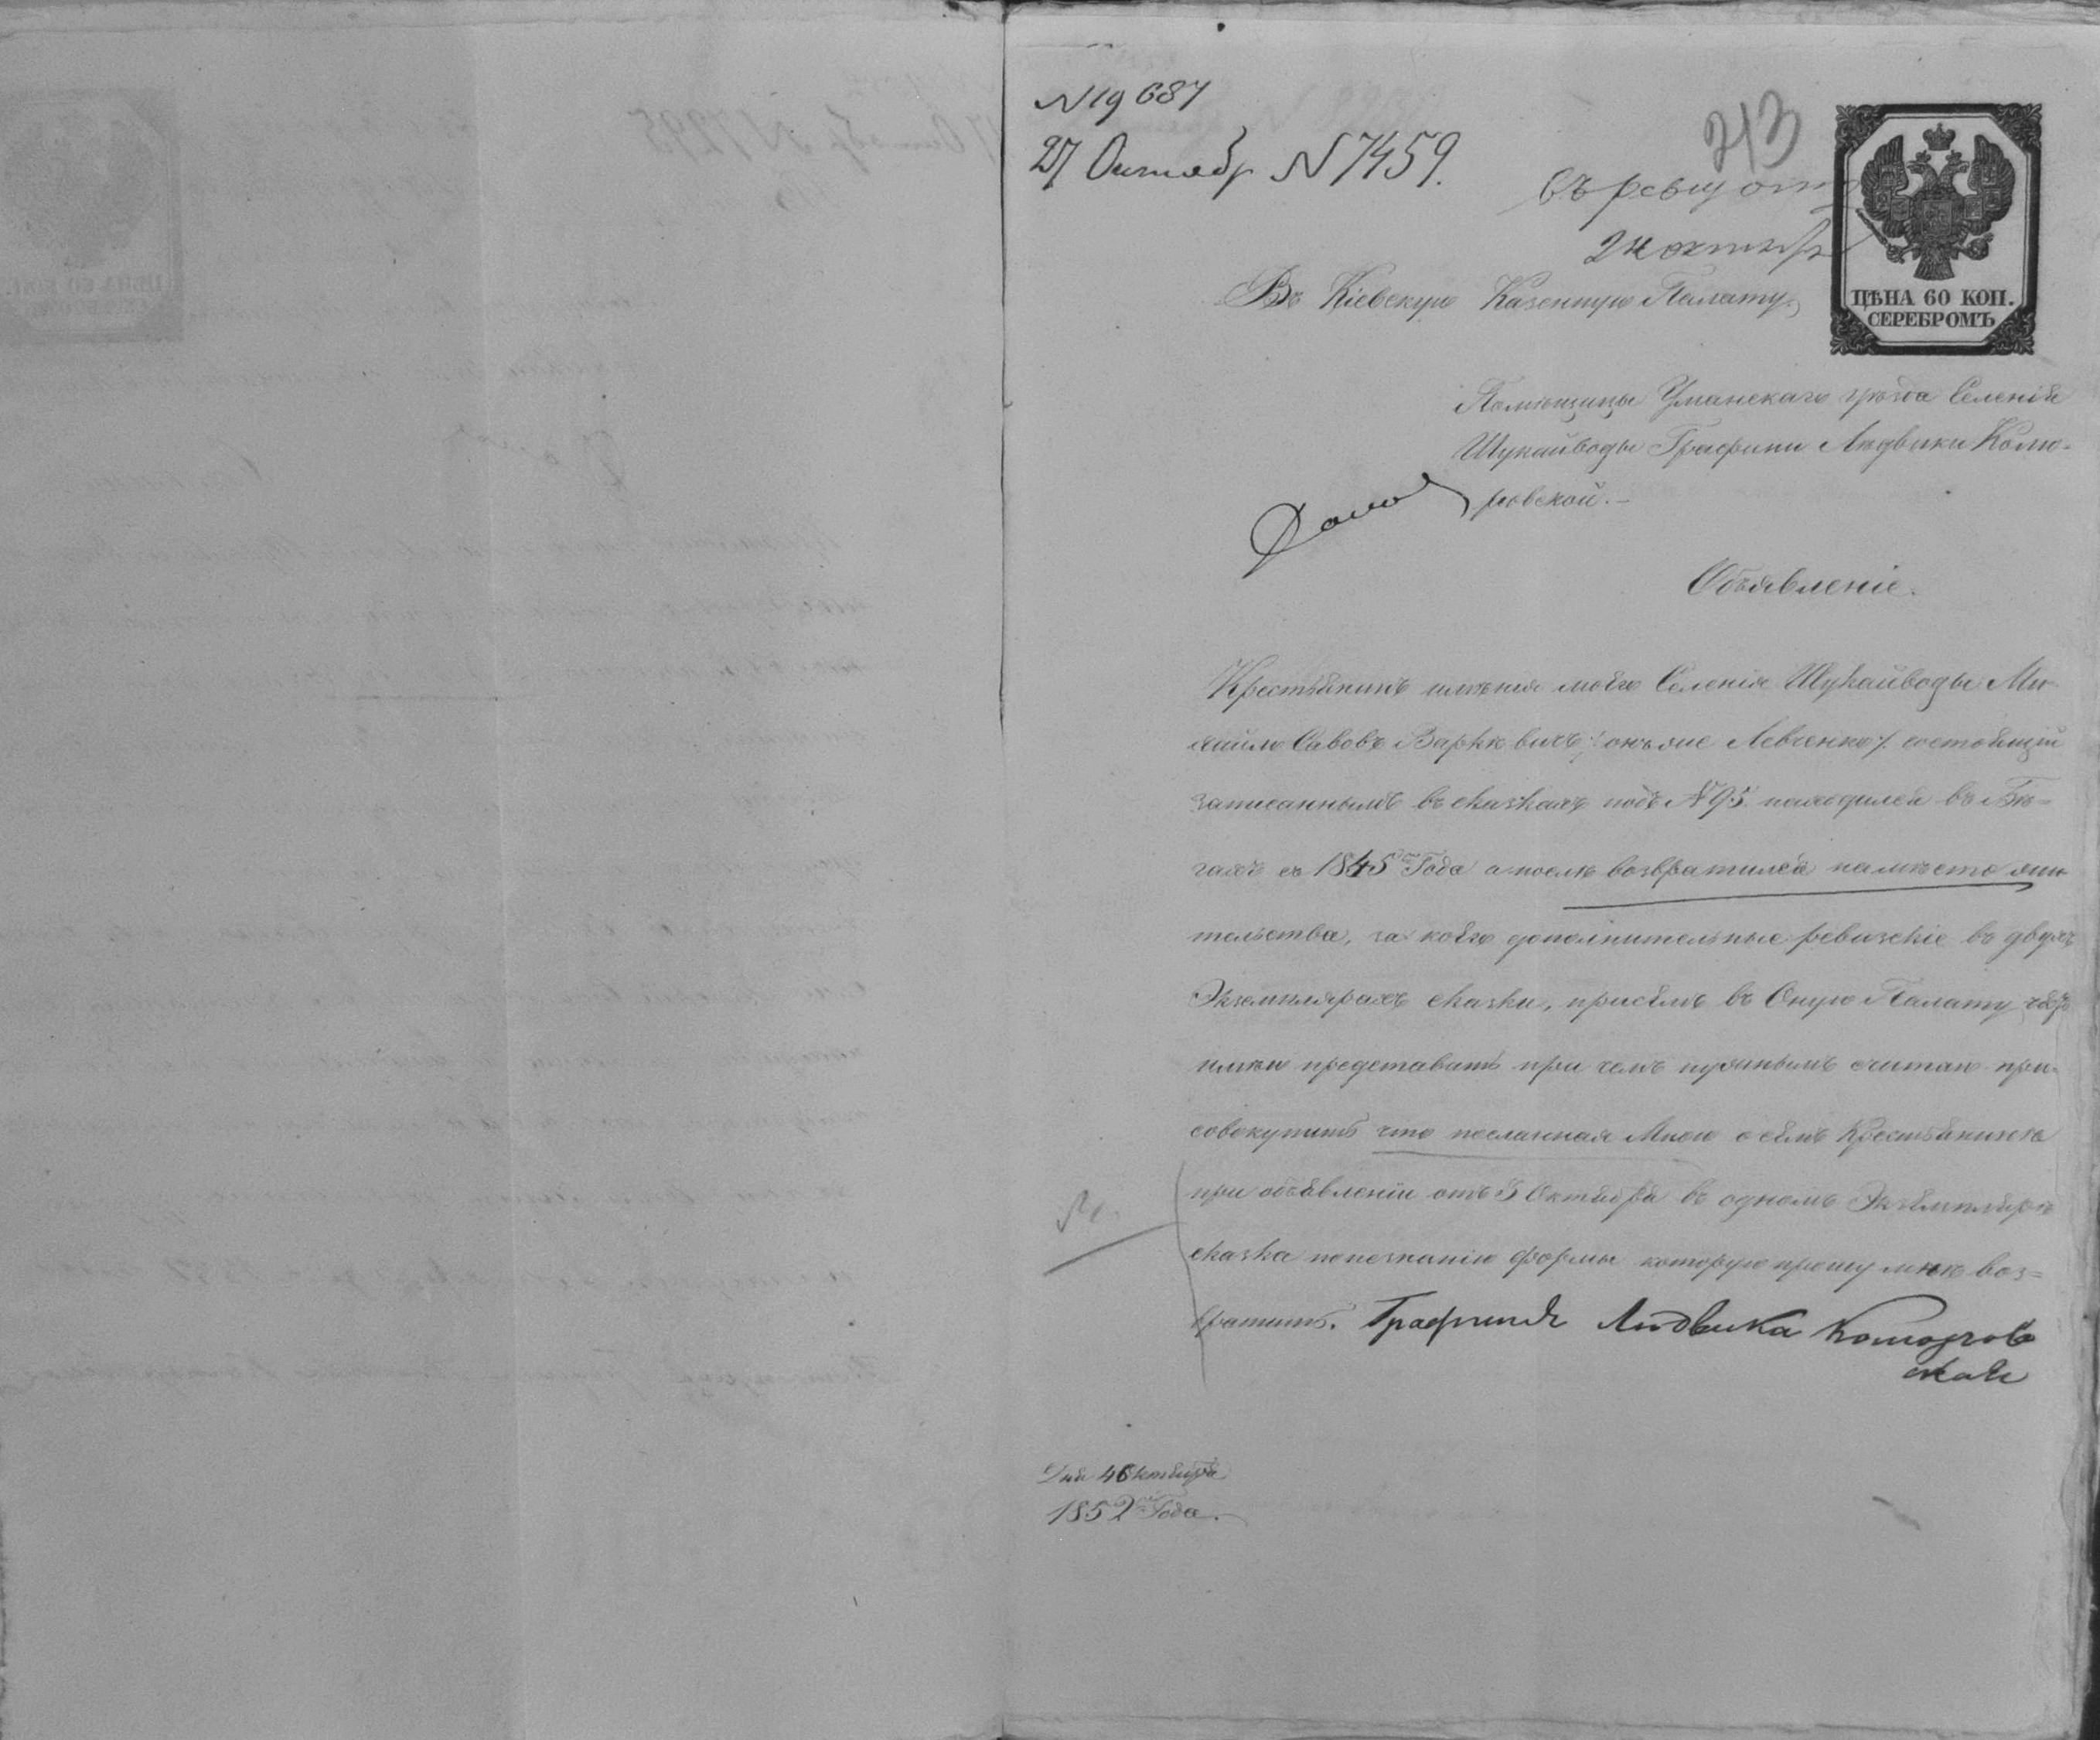 N 19 687
27 Октябр N 7459.
213
въ ревиз отд
24 октября
ЦѢНА 60 КОП.
СЕРЕБРОМЪ
Въ Кіевскую Казенную Палату.
Помѣщицы Уманскаго уѣзда Селенія
Шукайводы Графини Людвики Комо-
ровской.-
Объявленіе.
Крестьянинъ имѣнія моего Селенія Шукайводы Ми-
хайло Савовъ /: онъ же Левченко /. состоящій
записаннымъ въ сказкахъ подъ № 95 находился въ Бѣ=
гахъ съ 1845го Года а послѣ возвратился на мѣсто жи-
тельства, за коего дополнительные ревизскіе въ двухъ
Экземплярахъ сказки, присемъ въ Оную Палату честь
имѣю представить при чемъ нужнымъ считаю при-
совокупить что посланная Мною о семъ Крестьянинѣ
при объявленіи отъ 3 Октября въ одномъ Экземплярѣ
сказка понезнанію формы которую прошу мнѣ воз=
вратить. Графиня Людвика Коморов
ская
Дня 4 Октября
1852го Года.